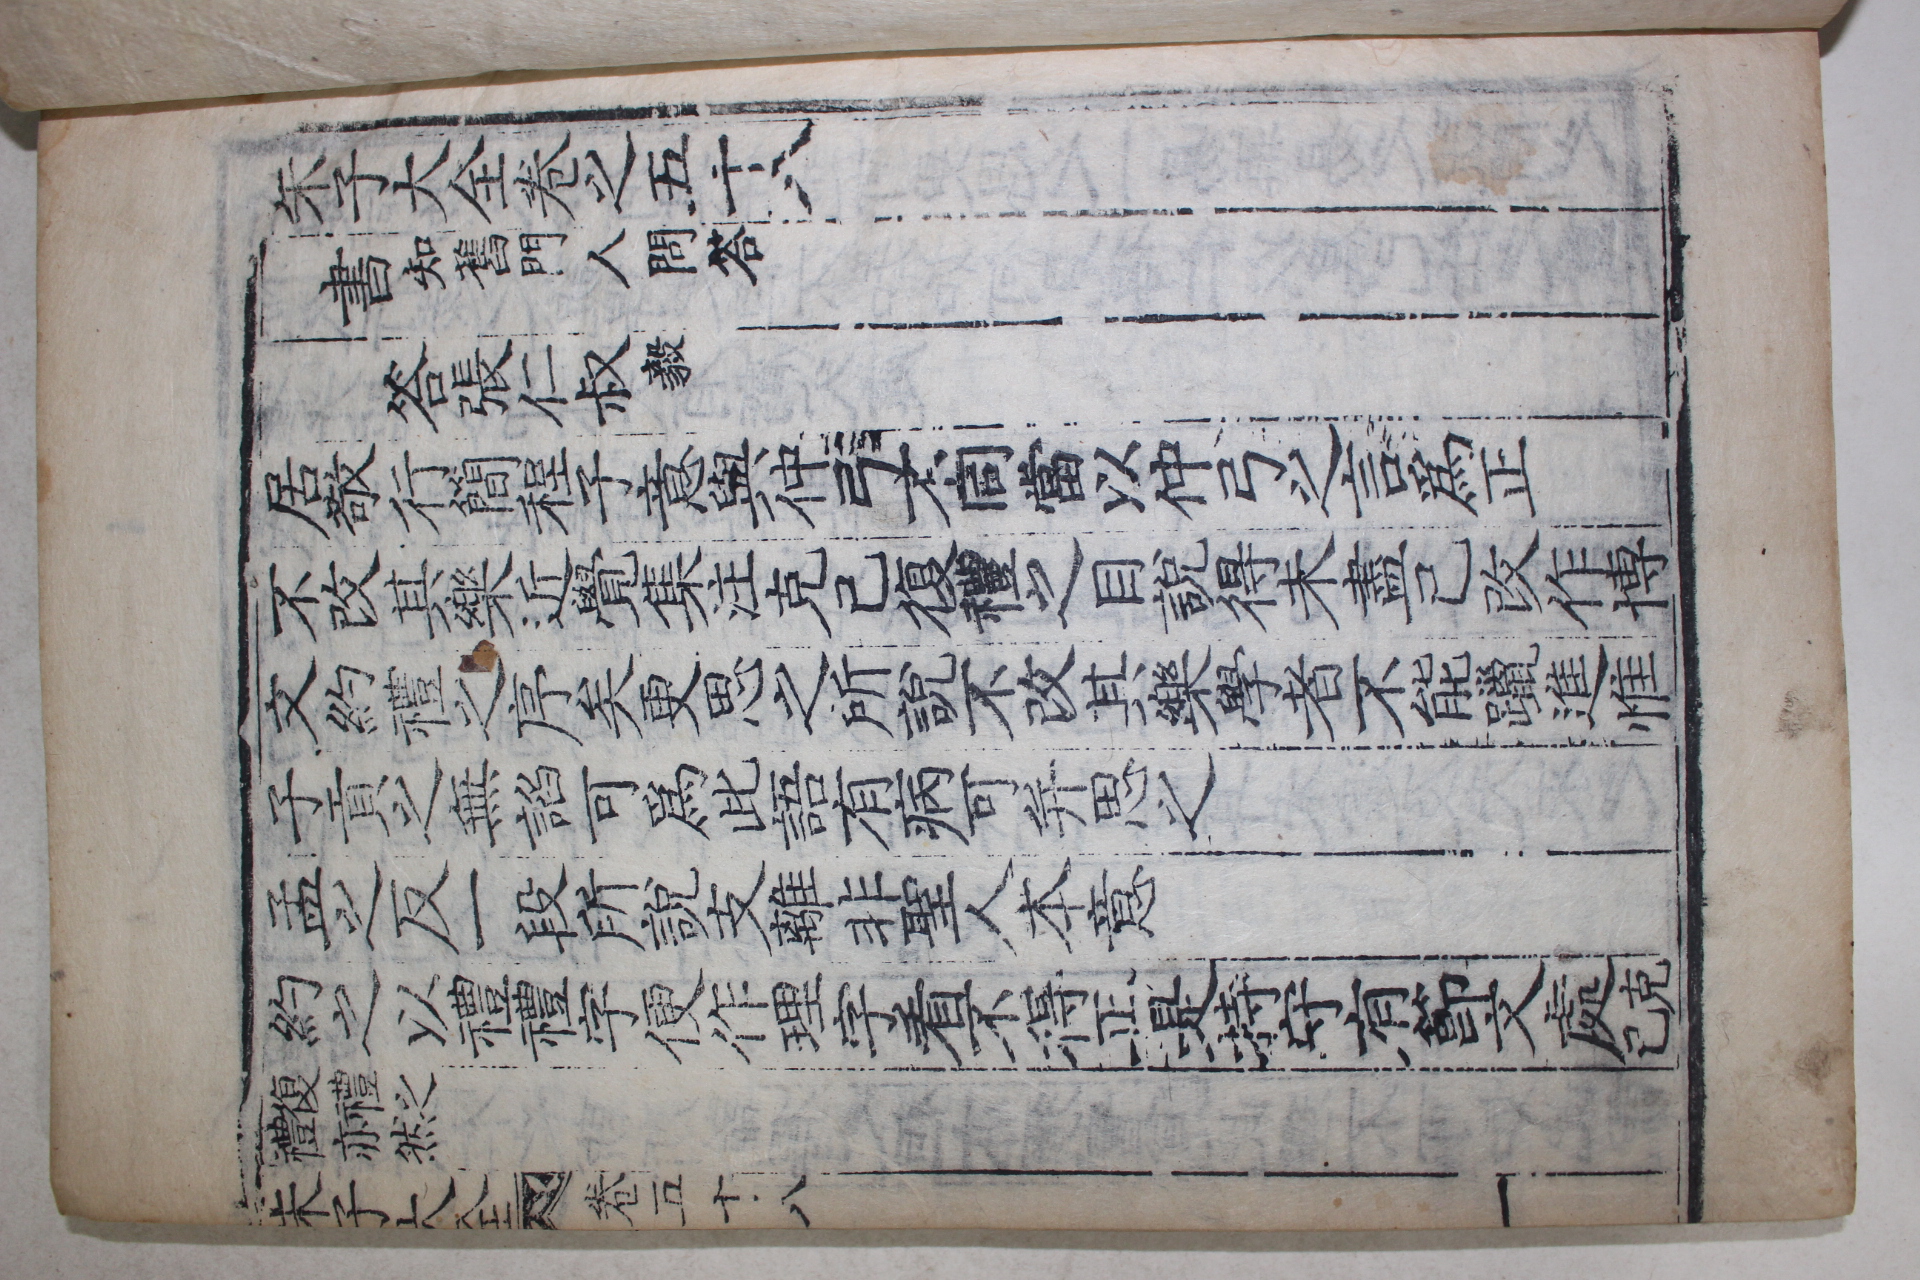 朱子大全卷之五十八
書 知舊門人問答
答張仁叔 毅
居敬行簡程子意與仲弓不同當以仲弓之言爲正
不改其樂近覺集注克己復禮之目說得未盡已改作博
文約禮之序矣更思之所說不改其樂學者不能躐進惟
子貢之無諂可爲此語有病可幷思之
孟之反一段所說支離非聖人本意
約之以禮禮字便作理字看不得正是持守有節文處克己
復禮之禮亦然
朱子大全 卷五十八 一